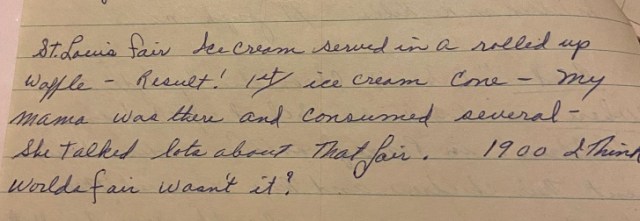 St. Louis Fair Ice cream served in a rolled up
Waffle - Result! 1st ice cream Cone - my
mama was there and consumed several -
She talked lots about that fair. 1900 I think
Worlds fair wasn't it?